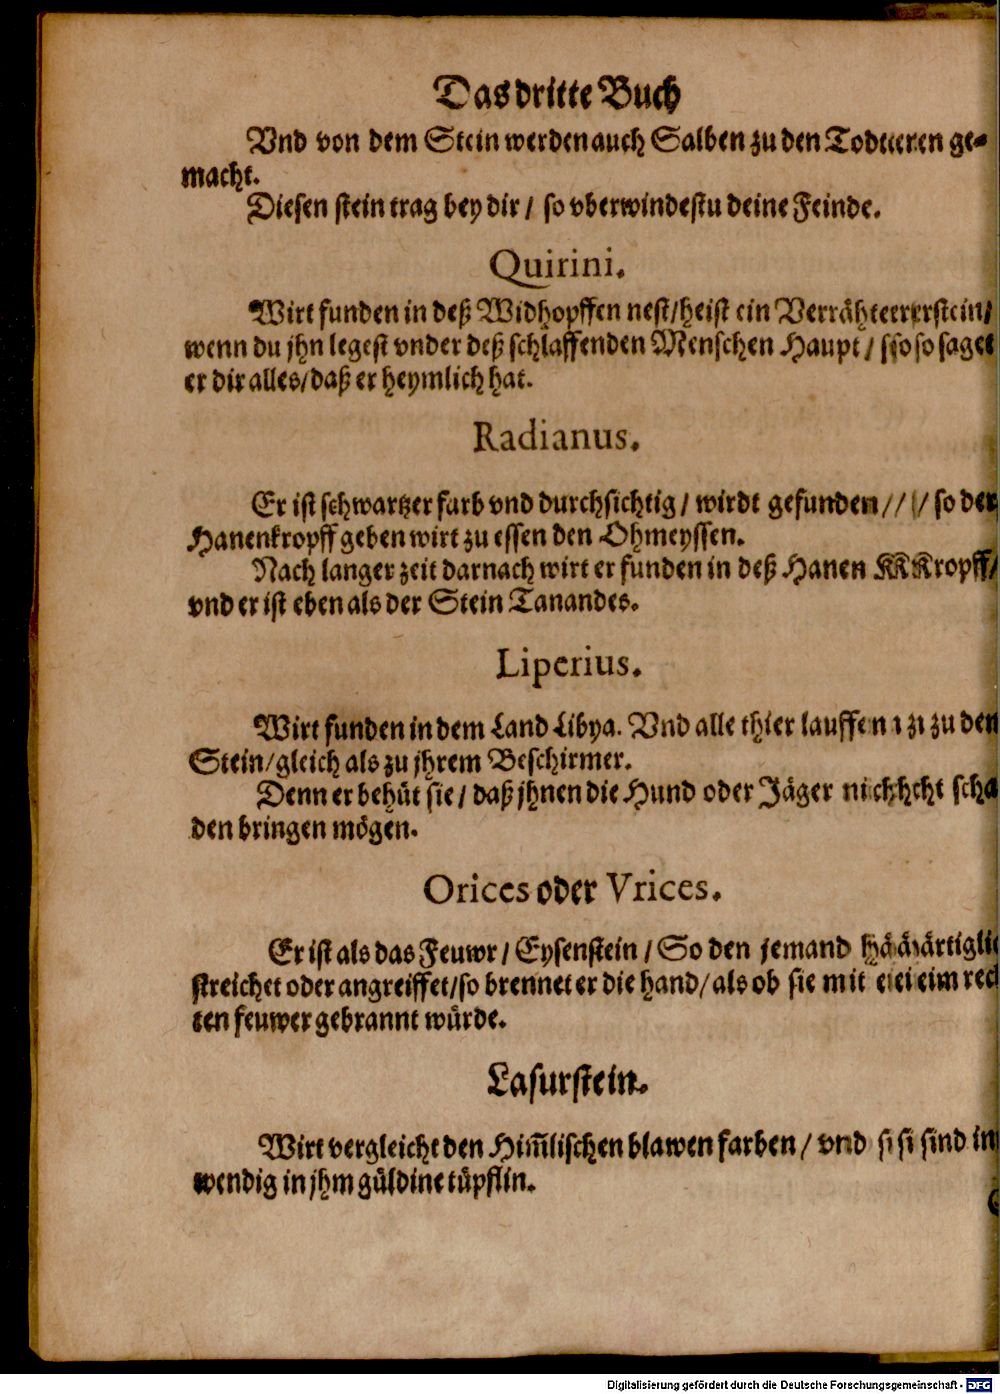 Das dritte Buch
Vnd von dem Stein werden auch Salben zu den Todteren ge-
macht.
Diesen stein trag bey dir / so vberwindestu deine Feinde.
Quirini.
Wirt funden in deß Widhopffen nest / heist ein Verrähtererstein /
wenn du jhn legest vnder deß schlaffenden Menschen Haupt / so saget
er dir alles / daß er heymlich hat.
Radianus.
Er ist schwartzer farb vnd durchsichtig / wirdt gefunden / so der
Hanenkropff geben wirt zu essen den Ohmeyssen.
Nach langer zeit darnach wirt er funden in deß Hanen Kropff /
vnd er ist eben als der Stein Tanandes.
Liperius.
Wirt funden in dem Land Libya. Vnd alle thier lauffen zu den
Stein / gleich als zu jhrem Beschirmer.
Denn er behüt sie / daß jhnen die Hund oder Jäger nicht scha
den bringen mögen.
Orices oder Vrices.
Er ist als das Feuwr / Eysenstein / So den jemand härtiglic
streichet oder angreiffet / so brennet er die hand / als ob sie mit eim rech
ten feuwer gebrannt würde.
Lasurstein.
Wirt vergleicht den Him̃lischen blawen farben / vnd sind in
wendig in jhm güldine tüpflin.
Digitalisierung gefördert durch die Deutsche Forschungsgemeinschaft - DFG